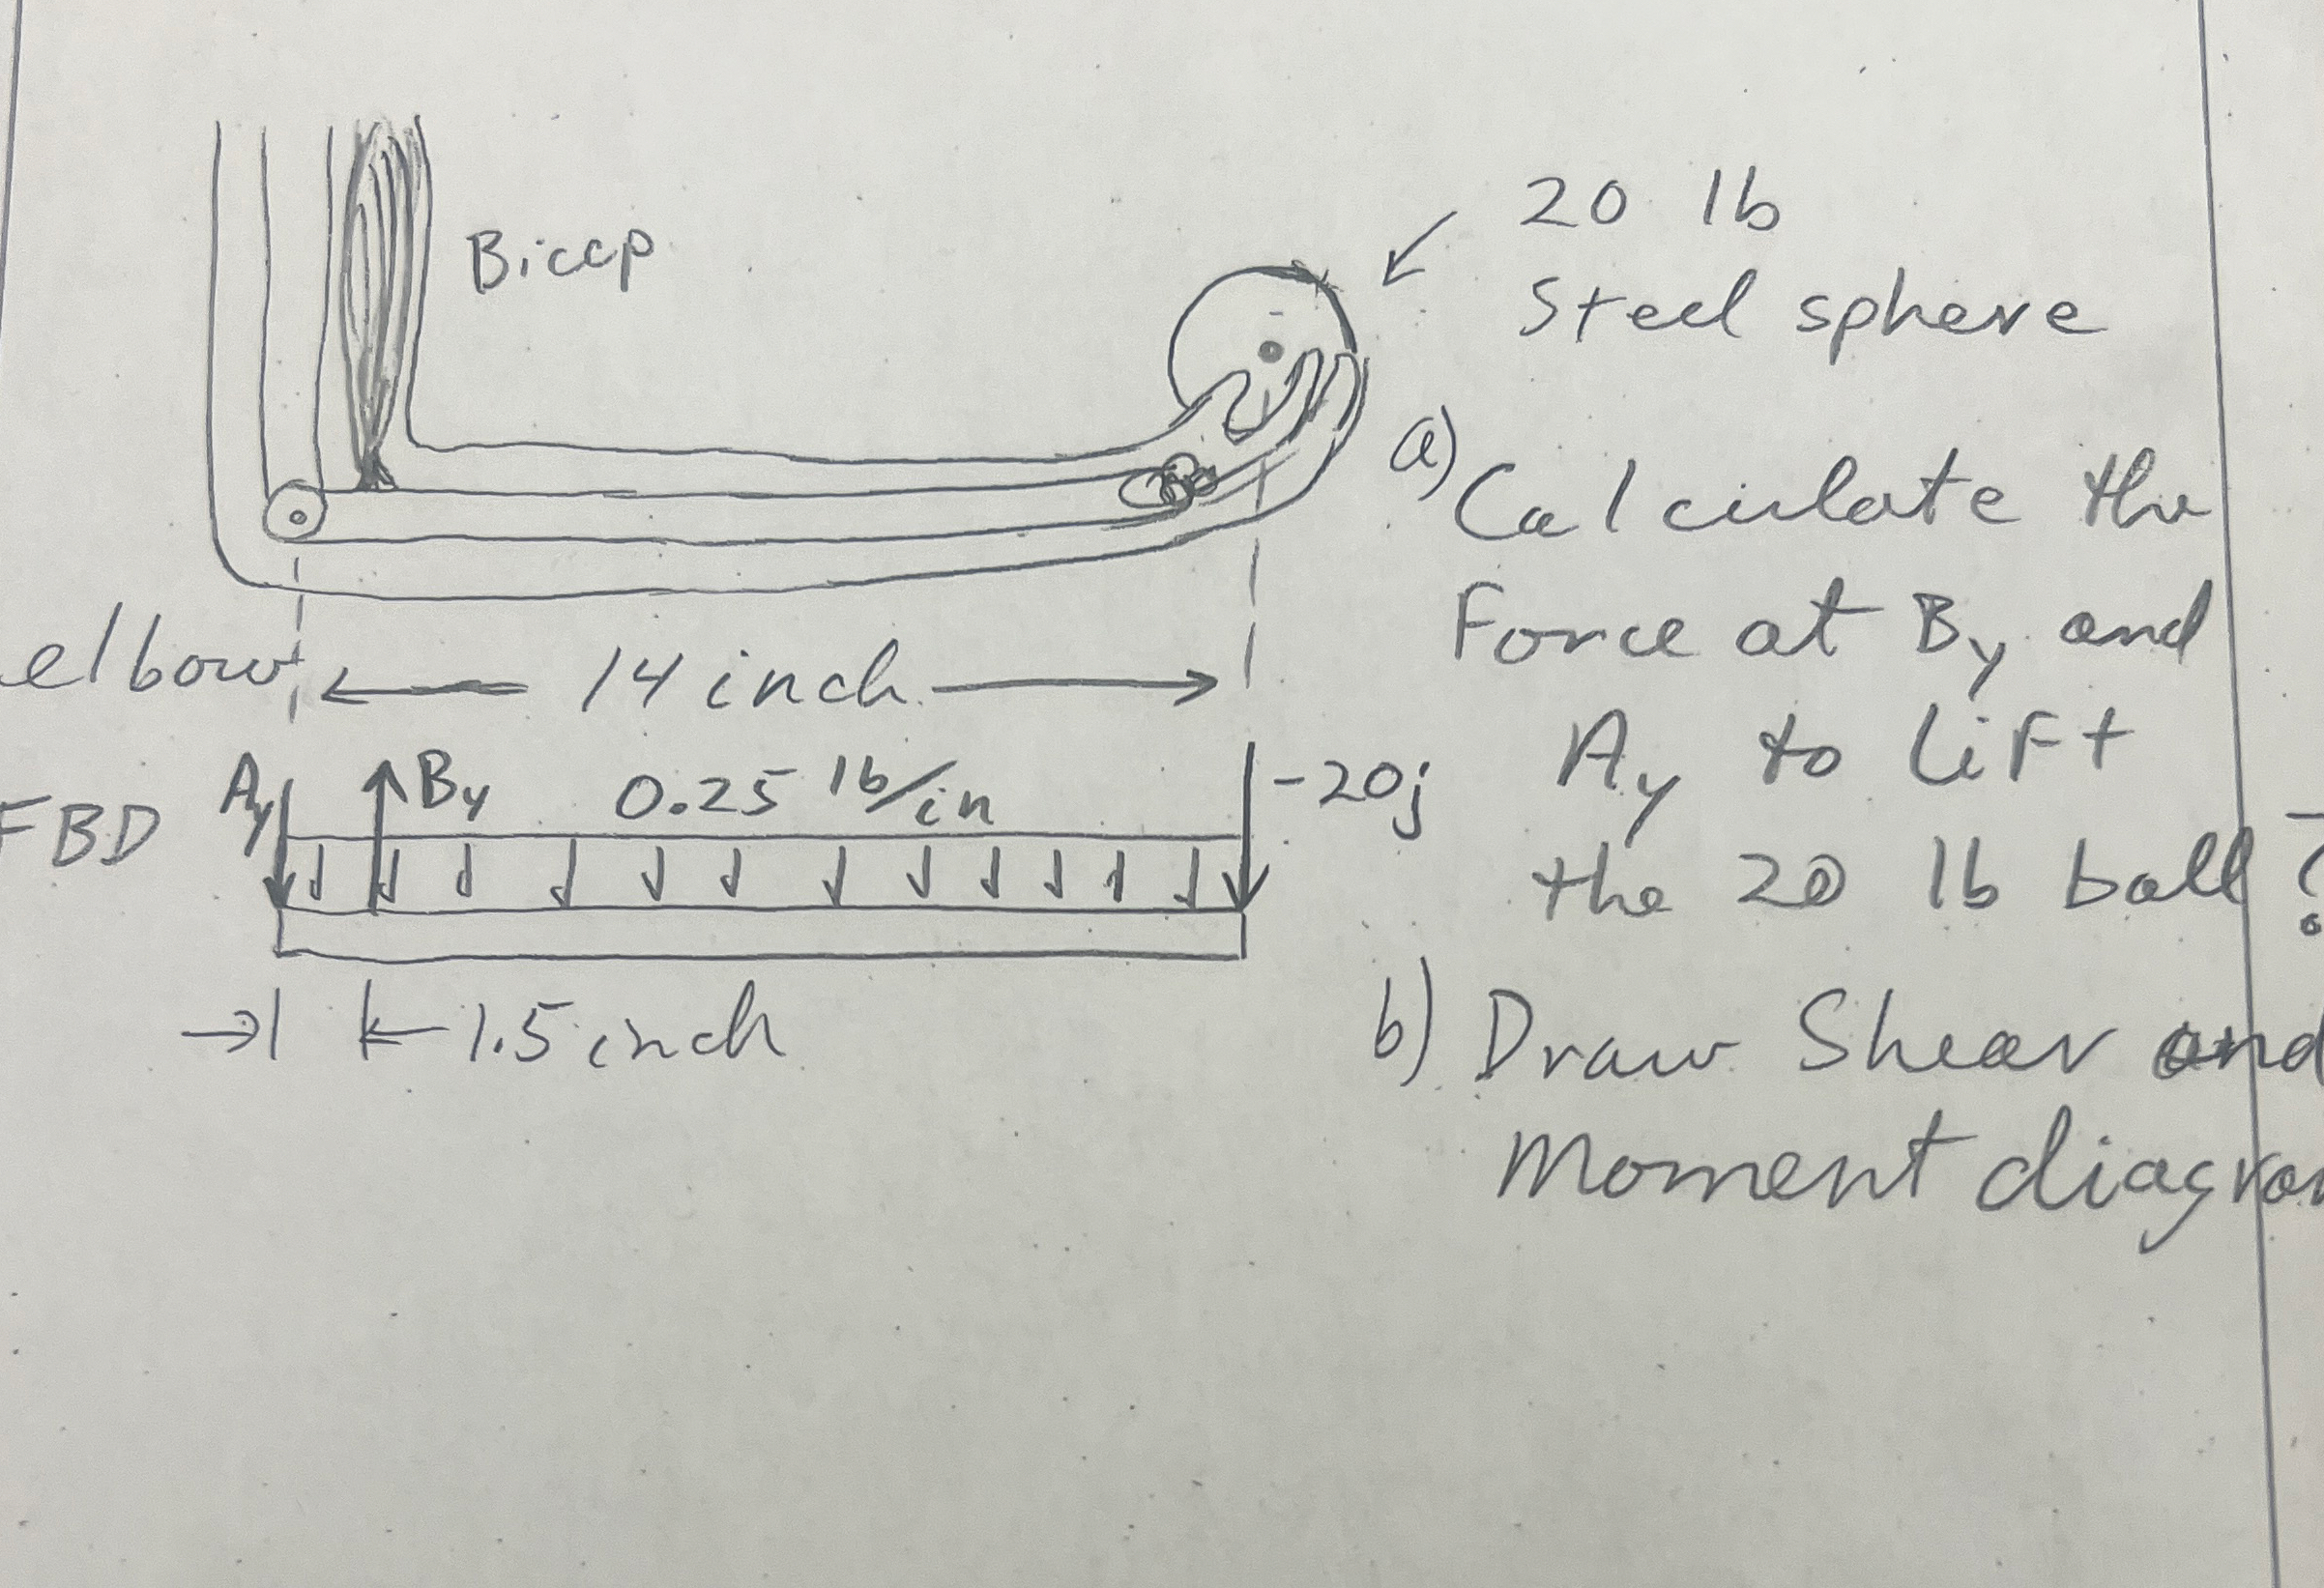 Bicep
20 lb
Steel sphere
elbow
14 inch
a) Calculate the
Force at By and
Ay to lift
the 20 lb ball?
FBD
Ay
By
0.25 lb/in
-20j
1.5 inch
b) Draw Shear and
Moment diagram